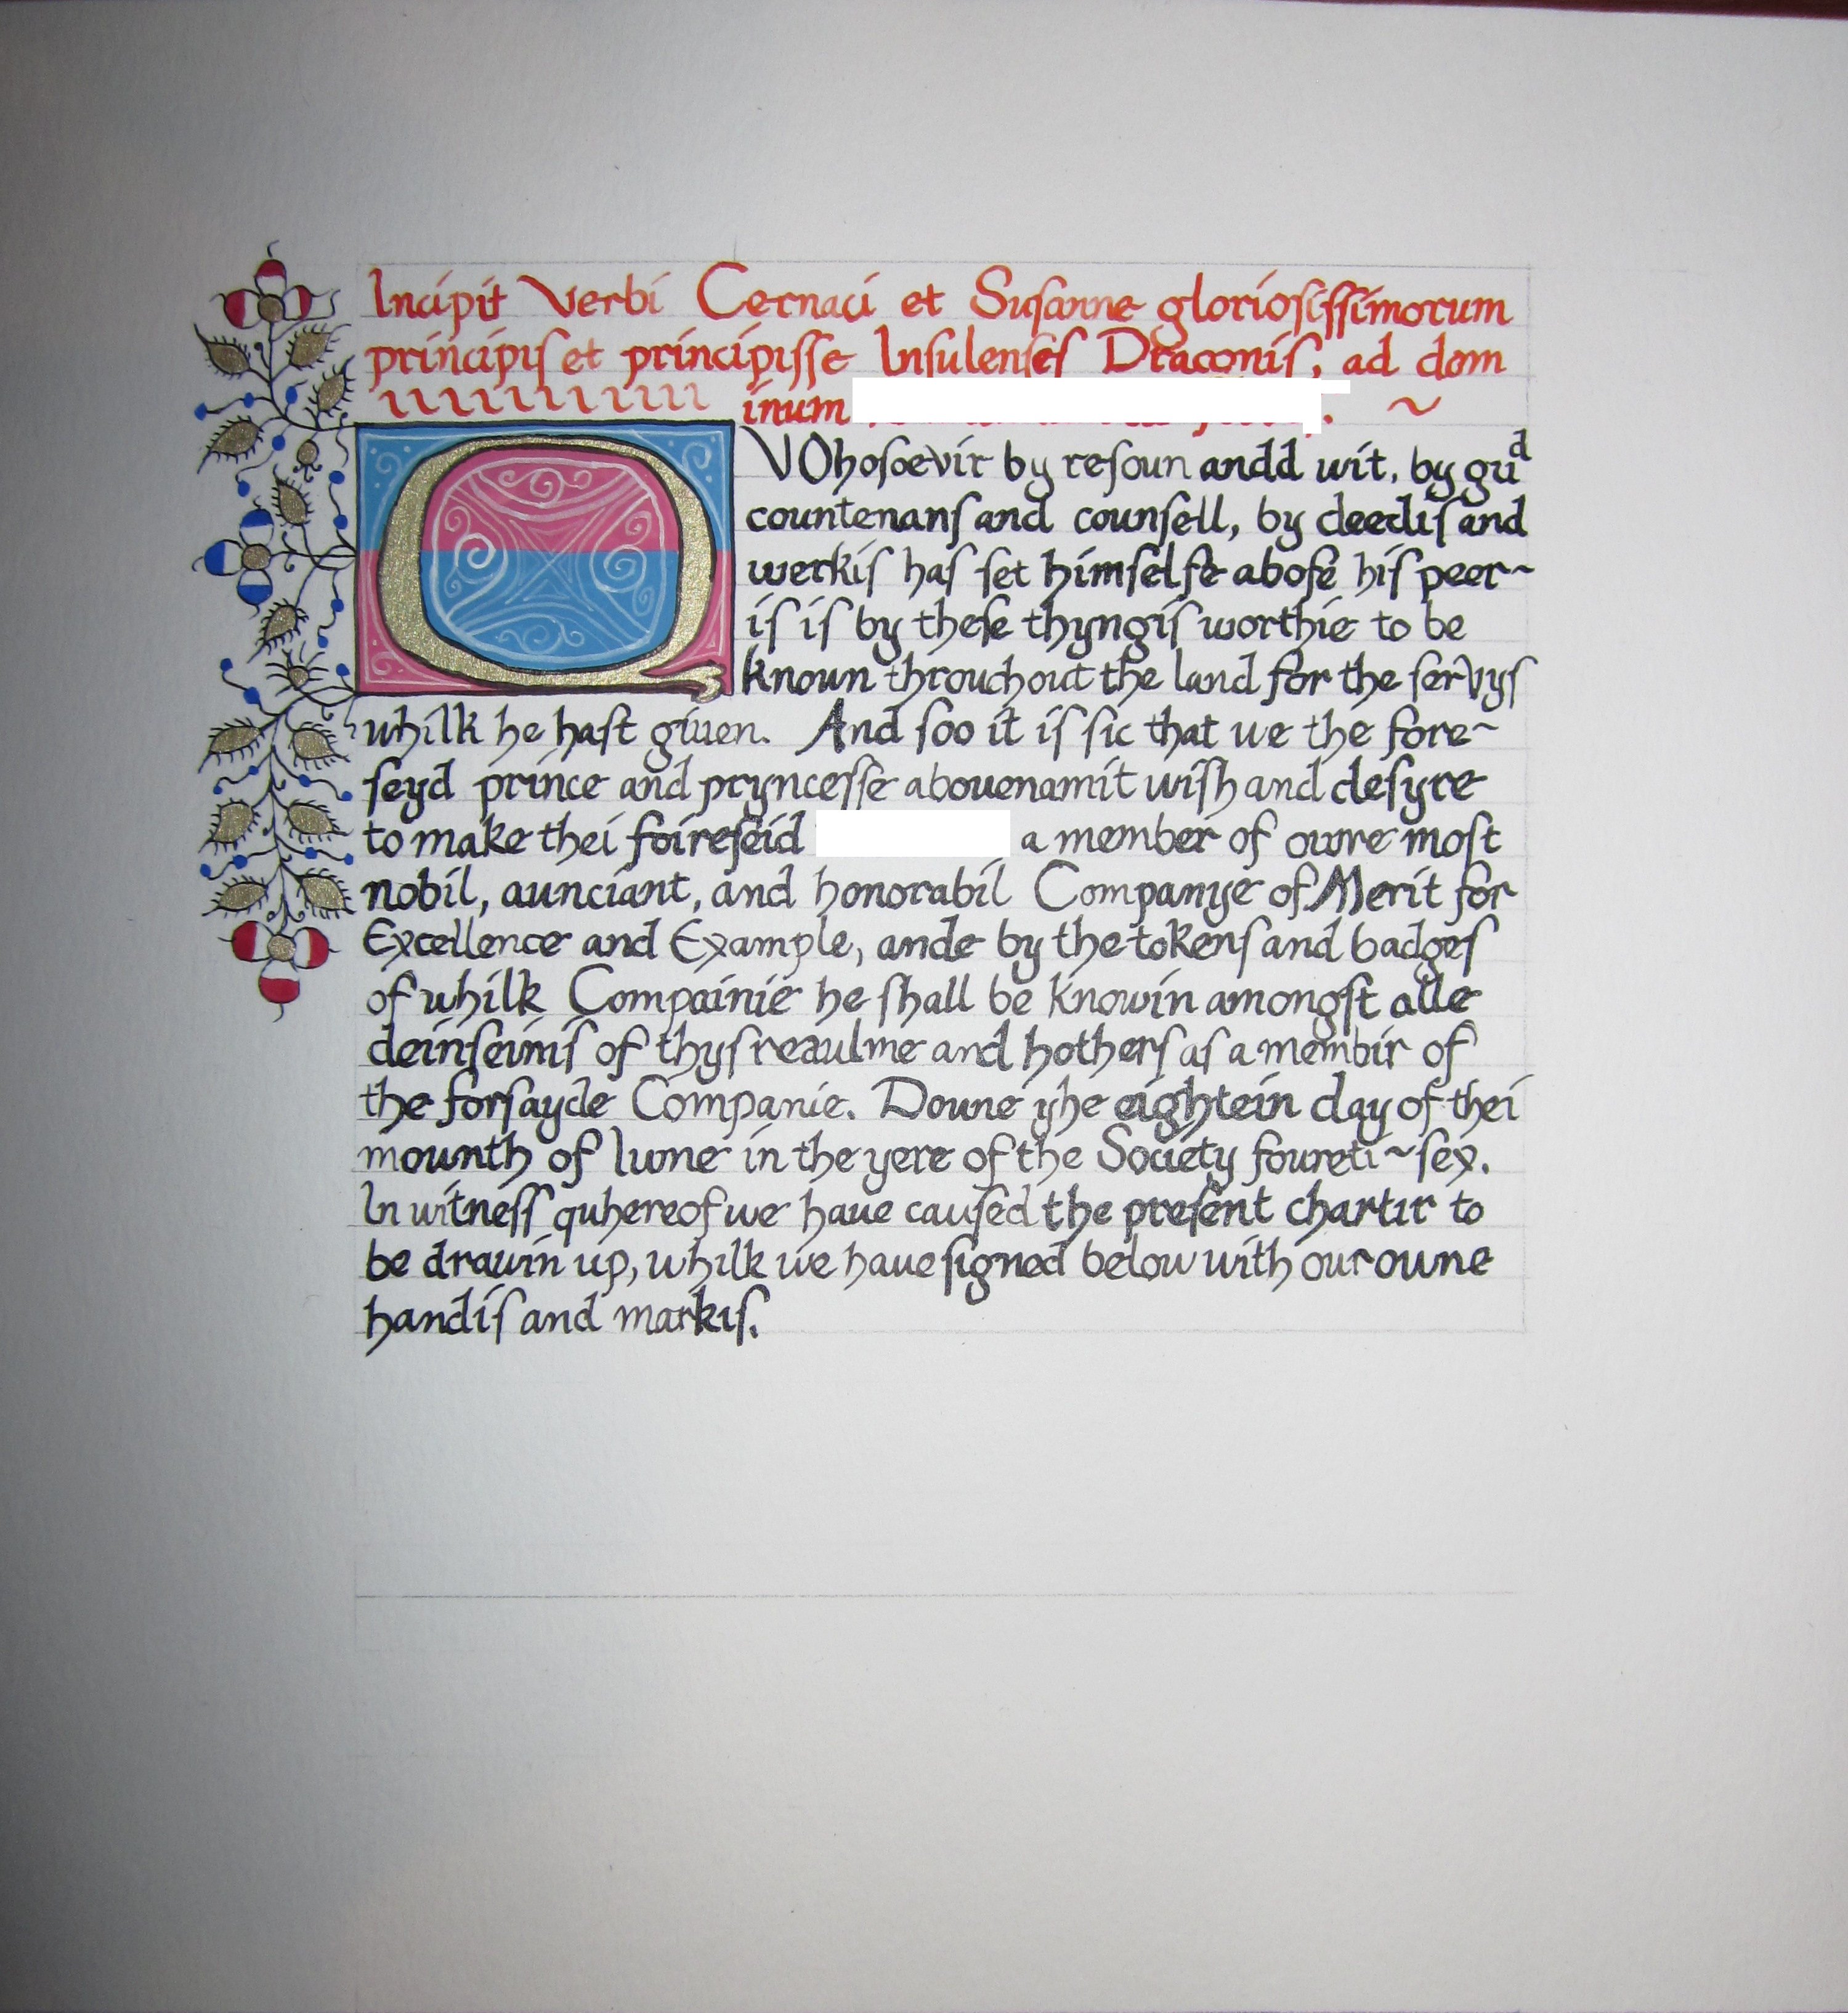 Incipit Verbi Cernaci et Susanne gloriosissimorum
principis et principisse Insulenses Draconis, ad dom
inum . ~
QVOhosoevir by resoun andd wit, by gud
countenans and counsell, by deedis and
werkis has set himselfe abofe his peer~
is is by these thyngis worthie to be
knoun throuchout the land for the servys
whilk he hast giuen. And soo it is sic that we the fore~
seyd prince and pryncesse abouenamit wish and desyre
to make thei foireseid a member of owre most
nobil, aunciant, and honorabil Companye of Merit for
Excellence and Example, ande by the tokens and badges
of whilk Compainie he shall be knowin amongst alle
of thys reaulme and hothers as a membir of
the forsayde Companie. Doune yhe eightein day of thei
mounth of Iune in the yere of the Society foureti~sex.
In witness quhereof we haue caused the present chartir to
be drawin up, whilk we haue signed below with our owne
handis and markis.